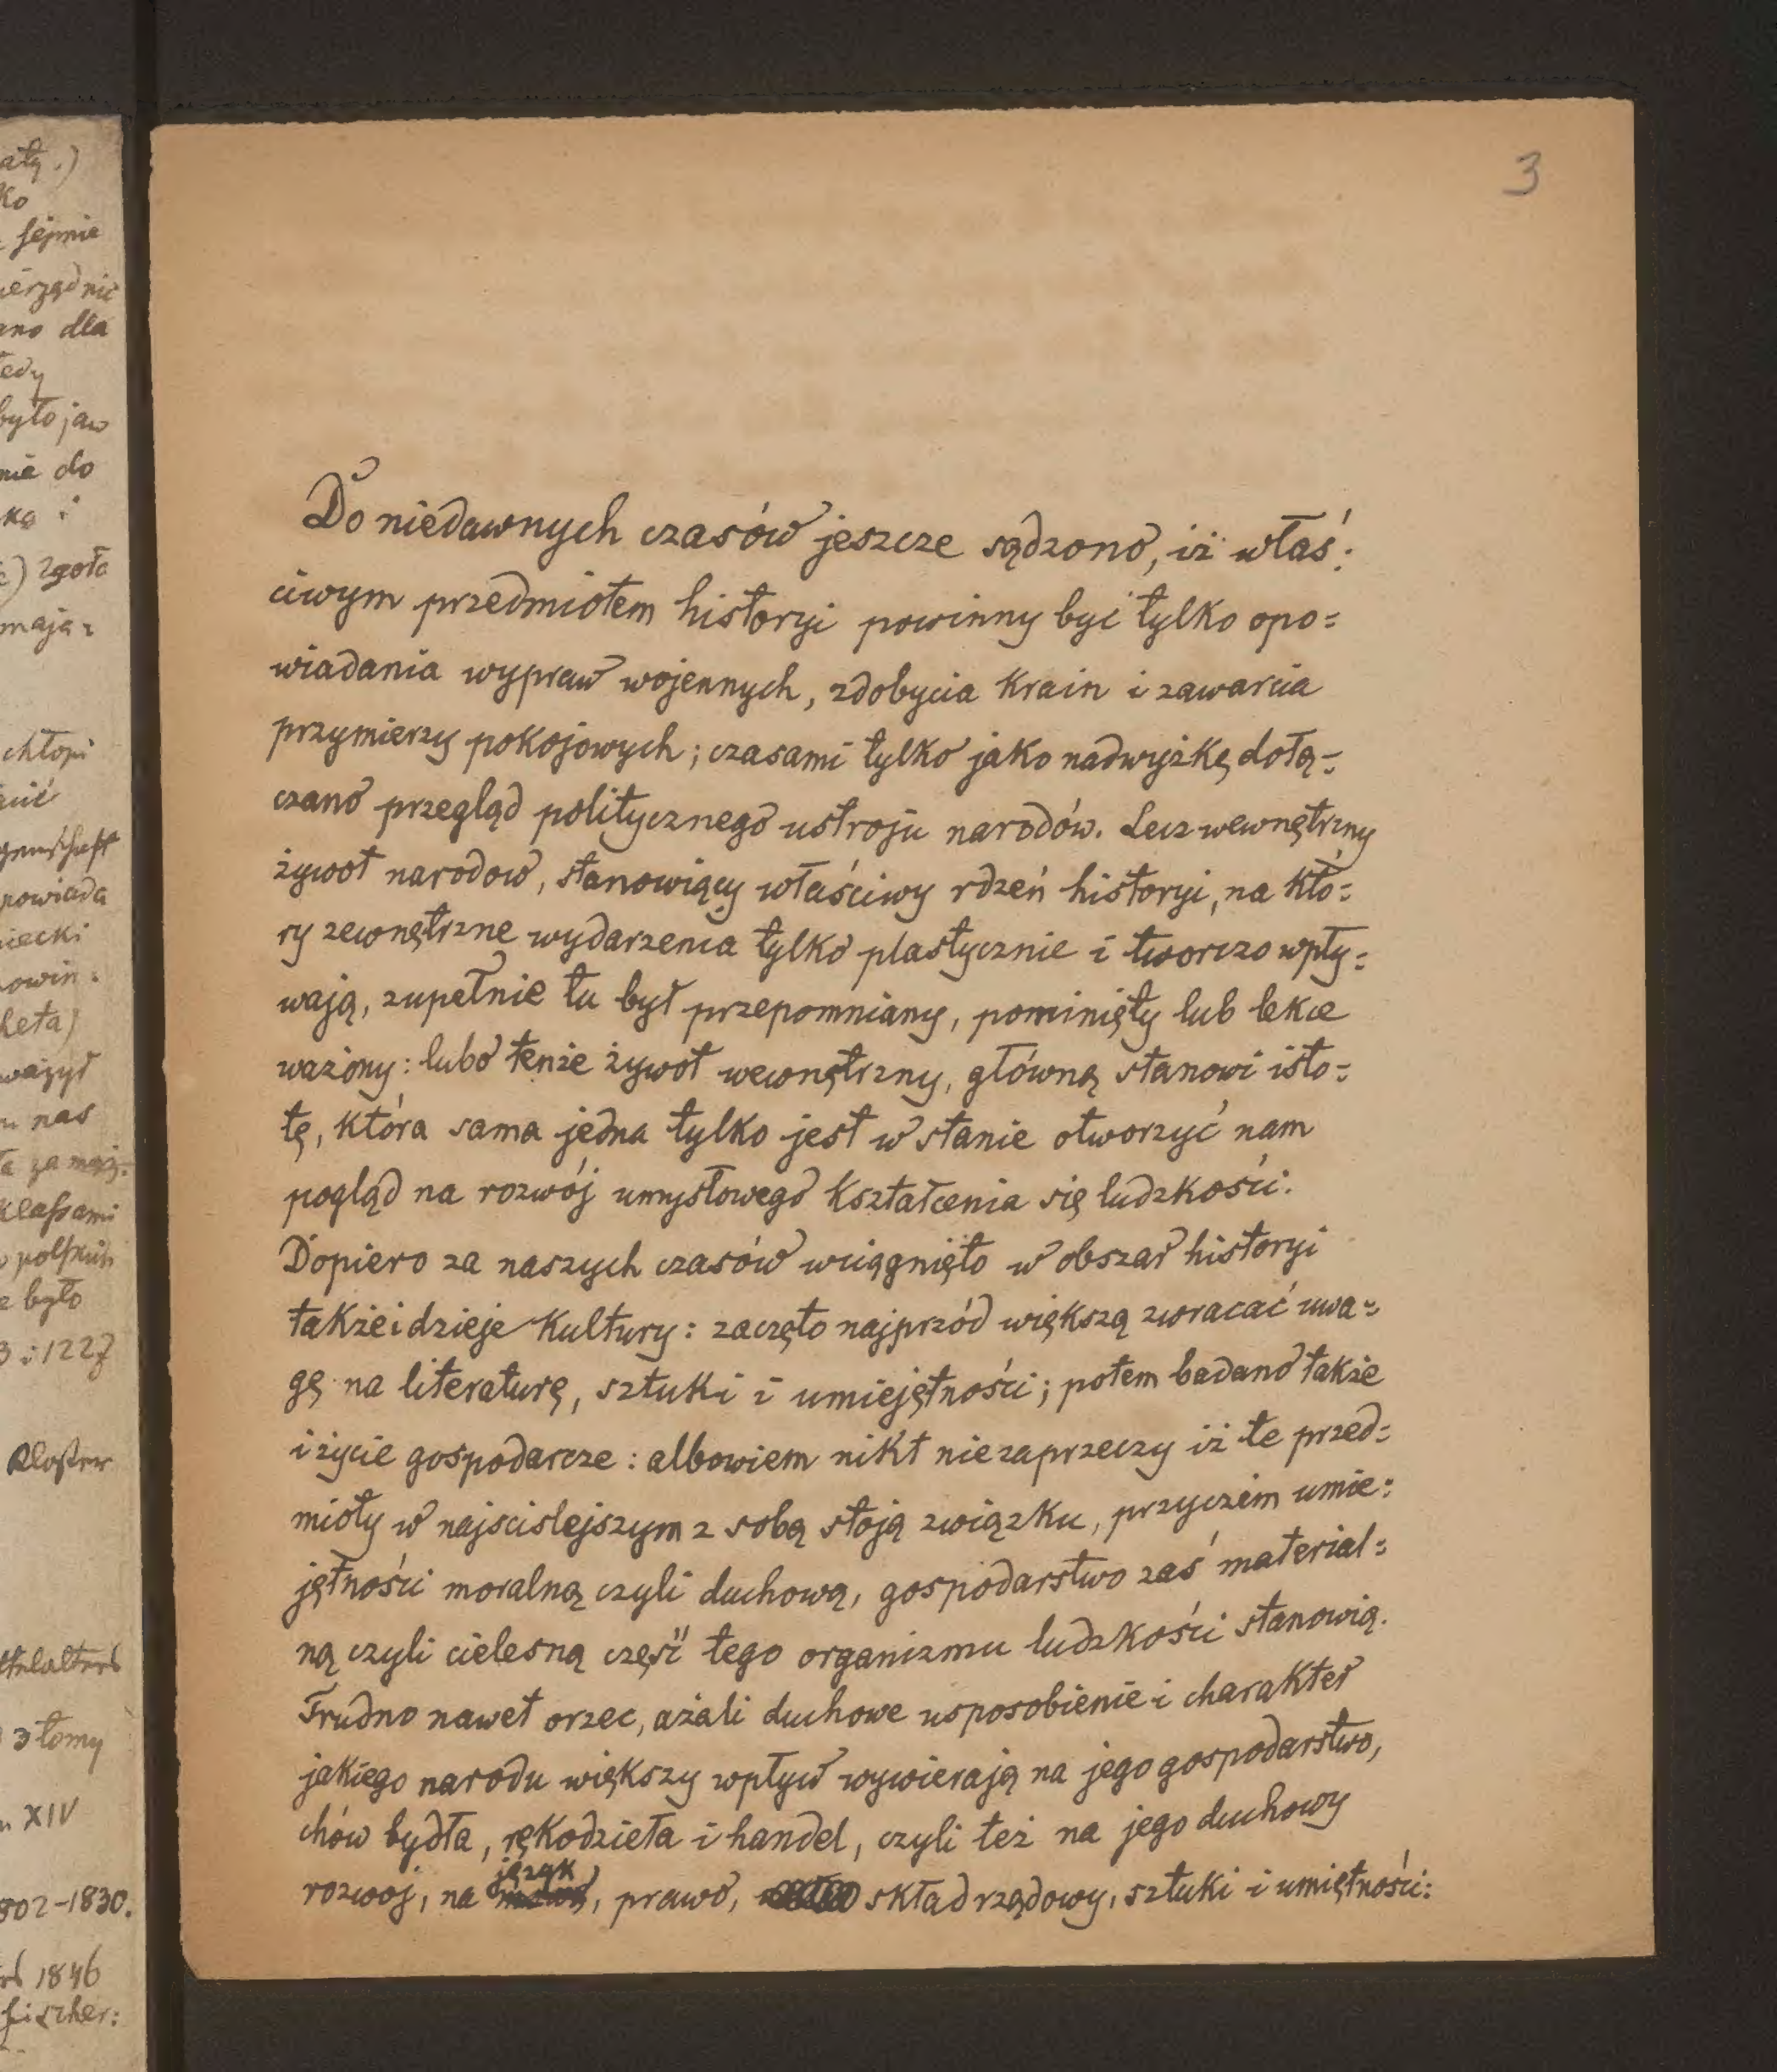 3
Do niedawnych czasów jeszcze sądzono, iż właś:
ciwym przedmiotem historyi powinny być tylko opo=
wiadania wypraw wojennych, zdobycia krain i zawarcia
przymierzy pokojowych; czasami tylko jako nadwyżkę dołą=
czano przegląd politycznego ustroju narodów. Lecz wewnętrzny
żywot narodow, stanowiący właściwy rdzeń historyi, na któ=
ry zewnętrzne wydarzenia tylko plastycznie i tworczo wpły=
wają, zupełnie tu był przepomniany, pominięty lub lekce
ważony: lubo tenże żywot wewnętrzny, główną stanowi isto=
tę, która sama jedna tylko jest w stanie otworzyć nam
pogląd na rozwój umysłowego kształcenia się ludzkości.
Dopiero za naszych czasów wciągnięto w obszar historyi
także i dzieje kultury: zaczęto najprzód większą zwracać uwa=
gę na literaturę, sztuki i umiejętności; potem badano także
i życie gospodarcze: albowiem nikt nie zaprzeczy iż te przed=
mioty w najscislejszym z sobą stoją związku, przyczem umie=
jętności moralną czyli duchową, gospodarstwo zaś material=
ną czyli cielesną część tego organizmu ludzkości stanowią.
Trudno nawet orzec, ażali duchowe usposobienie i charakter
jakiego narodu większy wpływ wywierają na jego gospodarstwo,
chów bydła, rękodzieła i handel, czyli też na jego duchowy
rozwoj, na język, prawo, skład rządowy, sztuki i umiętności:
ałą.)
ko
sejmie
ierządnic
ano dla
tedy
było jaw
nie do
ką i
zgoła
mają=
chłopi
powiada
iecki
owin=
heta)
ważył
nas
klassami
było
3 i 1227
Kloster
3 tomy
XIV
802-1830.
1846
fischer: